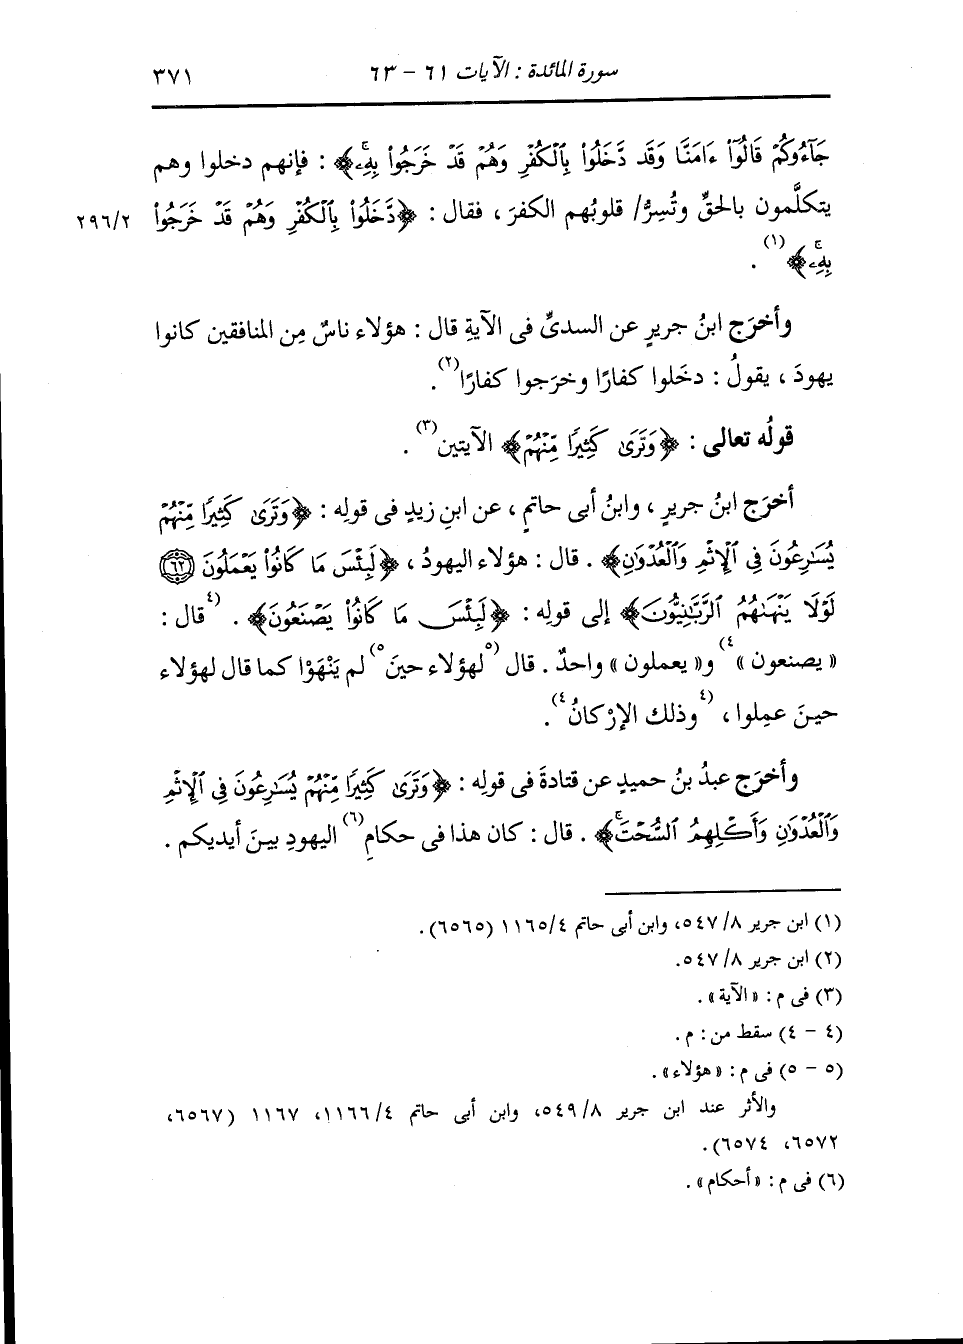 سورة المائدة : الآيات ٦١ - ٦٣ ٣٧١
جَآءُوكُمْ قَالُوٓا۟ ءَامَنَّا وَقَد دَّخَلُوا۟ بِٱلْكُفْرِ وَهُمْ قَدْ خَرَجُوا۟ بِهِۦۚ﴾ : فإنهم دخلوا وهم
يتكلَّمون بالحقِّ وتُسِرُّ/ قلوبُهم الكفرَ ، فقال : ﴿دَّخَلُوا۟ بِٱلْكُفْرِ وَهُمْ قَدْ خَرَجُوا۟ ٢٩٦/٢
بِهِۦۚ﴾(١) .
وأخرَج ابنُ جريرٍ عن السدىِّ فى الآيةِ قال : هؤلاء ناسٌ مِن المنافقين كانوا
يهودَ ، يقولُ : دخَلوا كفارًا وخرَجوا كفارًا(٢).
قولُه تعالى : ﴿وَتَرَىٰ كَثِيرًا مِّنْهُمْ﴾ الآيتين(٣) .
أخرَج ابنُ جريرٍ ، وابنُ أبى حاتمٍ ، عن ابنِ زيدٍ فى قولِه : ﴿وَتَرَىٰ كَثِيرًا مِّنْهُمْ
يُسَـٰرِعُونَ فِى ٱلْإِثْمِ وَٱلْعُدْوَٰنِ﴾ . قال : هؤلاء اليهودُ ، ﴿لَبِئْسَ مَا كَانُوا۟ يَعْمَلُونَ ٦٢
لَوْلَا يَنْهَىٰهُمُ ٱلرَّبَّـٰنِيُّونَ﴾ إلى قولِه : ﴿لَبِئْسَ مَا كَانُوا۟ يَصْنَعُونَ﴾ . (٤قال :
« يصنعون »٤) و« يعملون » واحدٌ . قال (٥لهؤلاء حينَ٥) لم يَنْهَوْا كما قال لهؤلاء
حينَ عمِلوا ، (٤وذلك الإرْكانُ٤).
وأخرَج عبدُ بنُ حميدٍ عن قتادةَ فى قولِه : ﴿وَتَرَىٰ كَثِيرًا مِّنْهُمْ يُسَـٰرِعُونَ فِى ٱلْإِثْمِ
وَٱلْعُدْوَٰنِ وَأَكْلِهِمُ ٱلسُّحْتَۚ﴾ . قال : كان هذا فى حكامِ(٦) اليهودِ بينَ أيديكم .
(١) ابن جرير ٨/ ٥٤٧، وابن أبى حاتم ١١٦٥/٤ (٦٥٦٥) .
(٢) ابن جرير ٨/ ٥٤٧.
(٣) فى م : « الآية» .
(٤ - ٤) سقط من : م .
(٥ - ٥) فى م : « هؤلاء» .
والأثر عند ابن جرير ٨/ ٥٤٩، وابن أبى حاتم ١١٦٦/٤، ١١٦٧ (٦٥٦٧،
٦٥٧٢، ٦٥٧٤) .
(٦) فى م : «أحكام» .